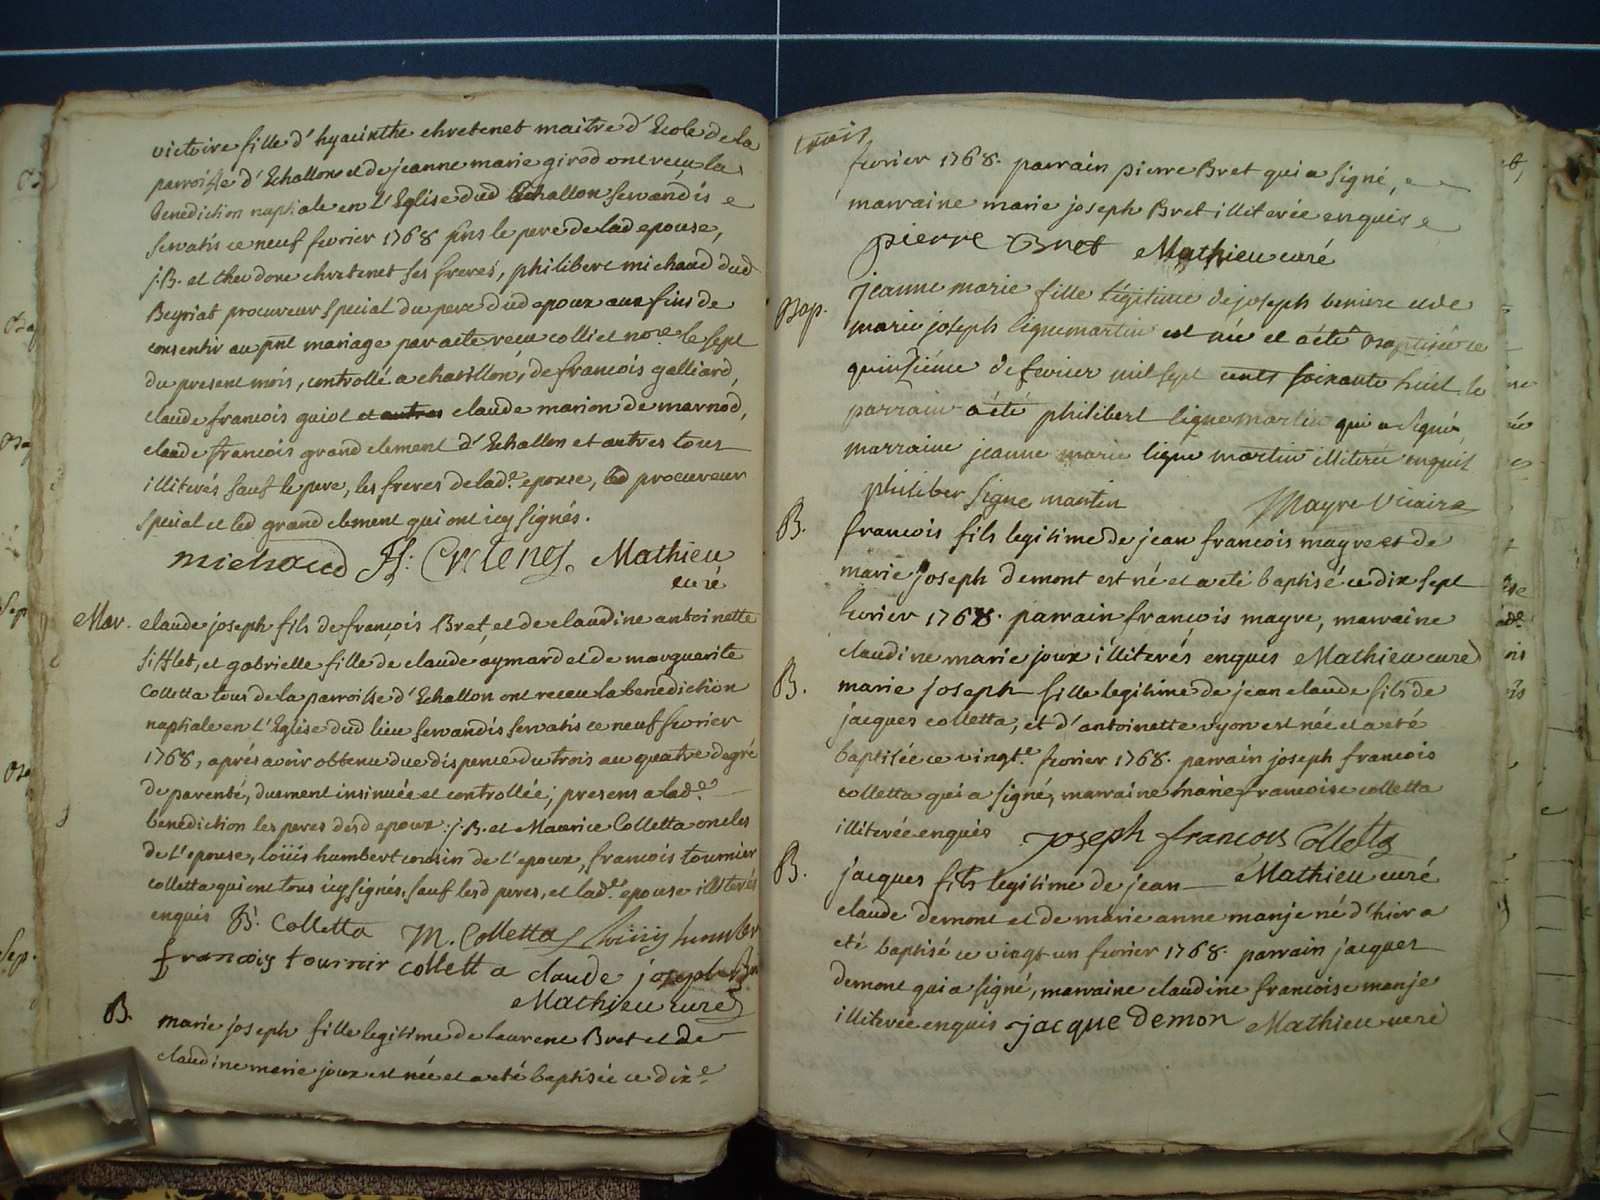 victoire fille d'hyacinthe chretenet maitre d'Ecole de la
parroisse d'Echallon et de jeanne marie girod ont recu la
Benediction nuptiale en l'Eglise dud Echallon servandis
servatis ce neuf fevrier 1768 pns le pere de lad epouse,
j.B. et theodore chretenet ses freres, philibert michaud dud
Beyriat procureur special du pere dud epoux aux fins de
consentir au pnt mariage par acte recu colliet no.re le sept
du present mois, controllé a chatillon, de francois galliard,
claude francois guiot et autres claude marion de marnod,
claude francois grand clement d'Echallon et autres tous
illiterés sauf le pere, les freres de lad.e epouse, led procureur
special et led grand clement qui ont icy signés.
michaud Mathieu
curé
Mar. claude joseph fils de françois Bret, et de claudine antoinette
sifflet, et gabrielle fille de claude aymard et de marguerite
Colletta tous de la parroisse d'Echallon ont receu la benediction
nuptiale en l'Eglise dud lieu servandis servatis ce neuf fevrier
1768, aprés avoir obtenu due dispense du trois au quatre degré
de parenté, duement insinuée et controllée; presens a lad.e
benediction les peres desd epoux: j.B. et Maurice Colletta oncles
de l'epouse, loüis humbert cousin de l'epoux, francois tournier
colletta qui ont tous icy signés, sauf lesd peres, et lad.e epouse illiterés
enquis B. Colletta M. Colletta Loüis humber
françois tournir colletta claude joseph
Mathieu curé
B. marie joseph fille legitime de laurent Bret et de
claudine marie joux est née et a eté baptisée ce dix.e
fevrier 1768. parrain pierre Bret qui a signé,
marraine marie joseph Bret illiterée enquise
pierre Bret Mathieu curé
Bap. jeanne marie fille légitime de joseph beniere et de
marie joseph lignemartin est née et a été Baptisée ce
quinziéme de fevrier mil sept cents soixante huit le
parrain a été philibert lignemartin qui a signé,
marraine jeanne marie ligne martin illiteré enquis
philiber ligne martin Mayre Vicaire
B. francois fils legitime de jean francois mayre et de
marie joseph demont est né et a eté baptisé ce dix sept
fevrier 1768. parrain françois mayre, marraine
claudine marie joux illiterés enquis Mathieu curé
B. marie joseph fille legitime de jean claude fils de
jacques colletta, et d'antoinette vyon est née et a eté
baptisée ce vingt.e fevrier 1768. parrain joseph francois
colletta qui a signé, marraine marie francoise colletta
illiterée enquis joseph francois Colletta
B. jacques fils legitime de jean Mathieu curé
claude demont et de marie anne manje né d'hier a
eté baptisé ce vingt un fevrier 1768. parrain jacques
demont qui a signé, marraine claudine francoise manje
illiterée enquis jacque Demon Mathieu curé